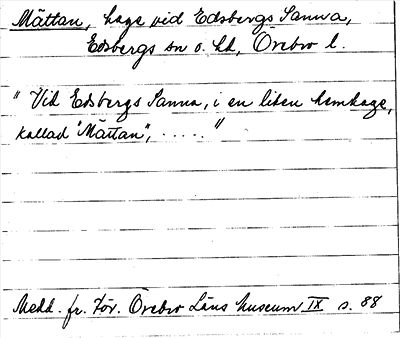 Mättan, hage vid Edsbergs Sanna,
Edsbergs sn o. hd, Örebro l.
"Vid Edsbergs Sanna, i en liten hemhage,
kallad "Mättan", ....."
Medd. fr. För. Örebro Läns museum IX s. 88